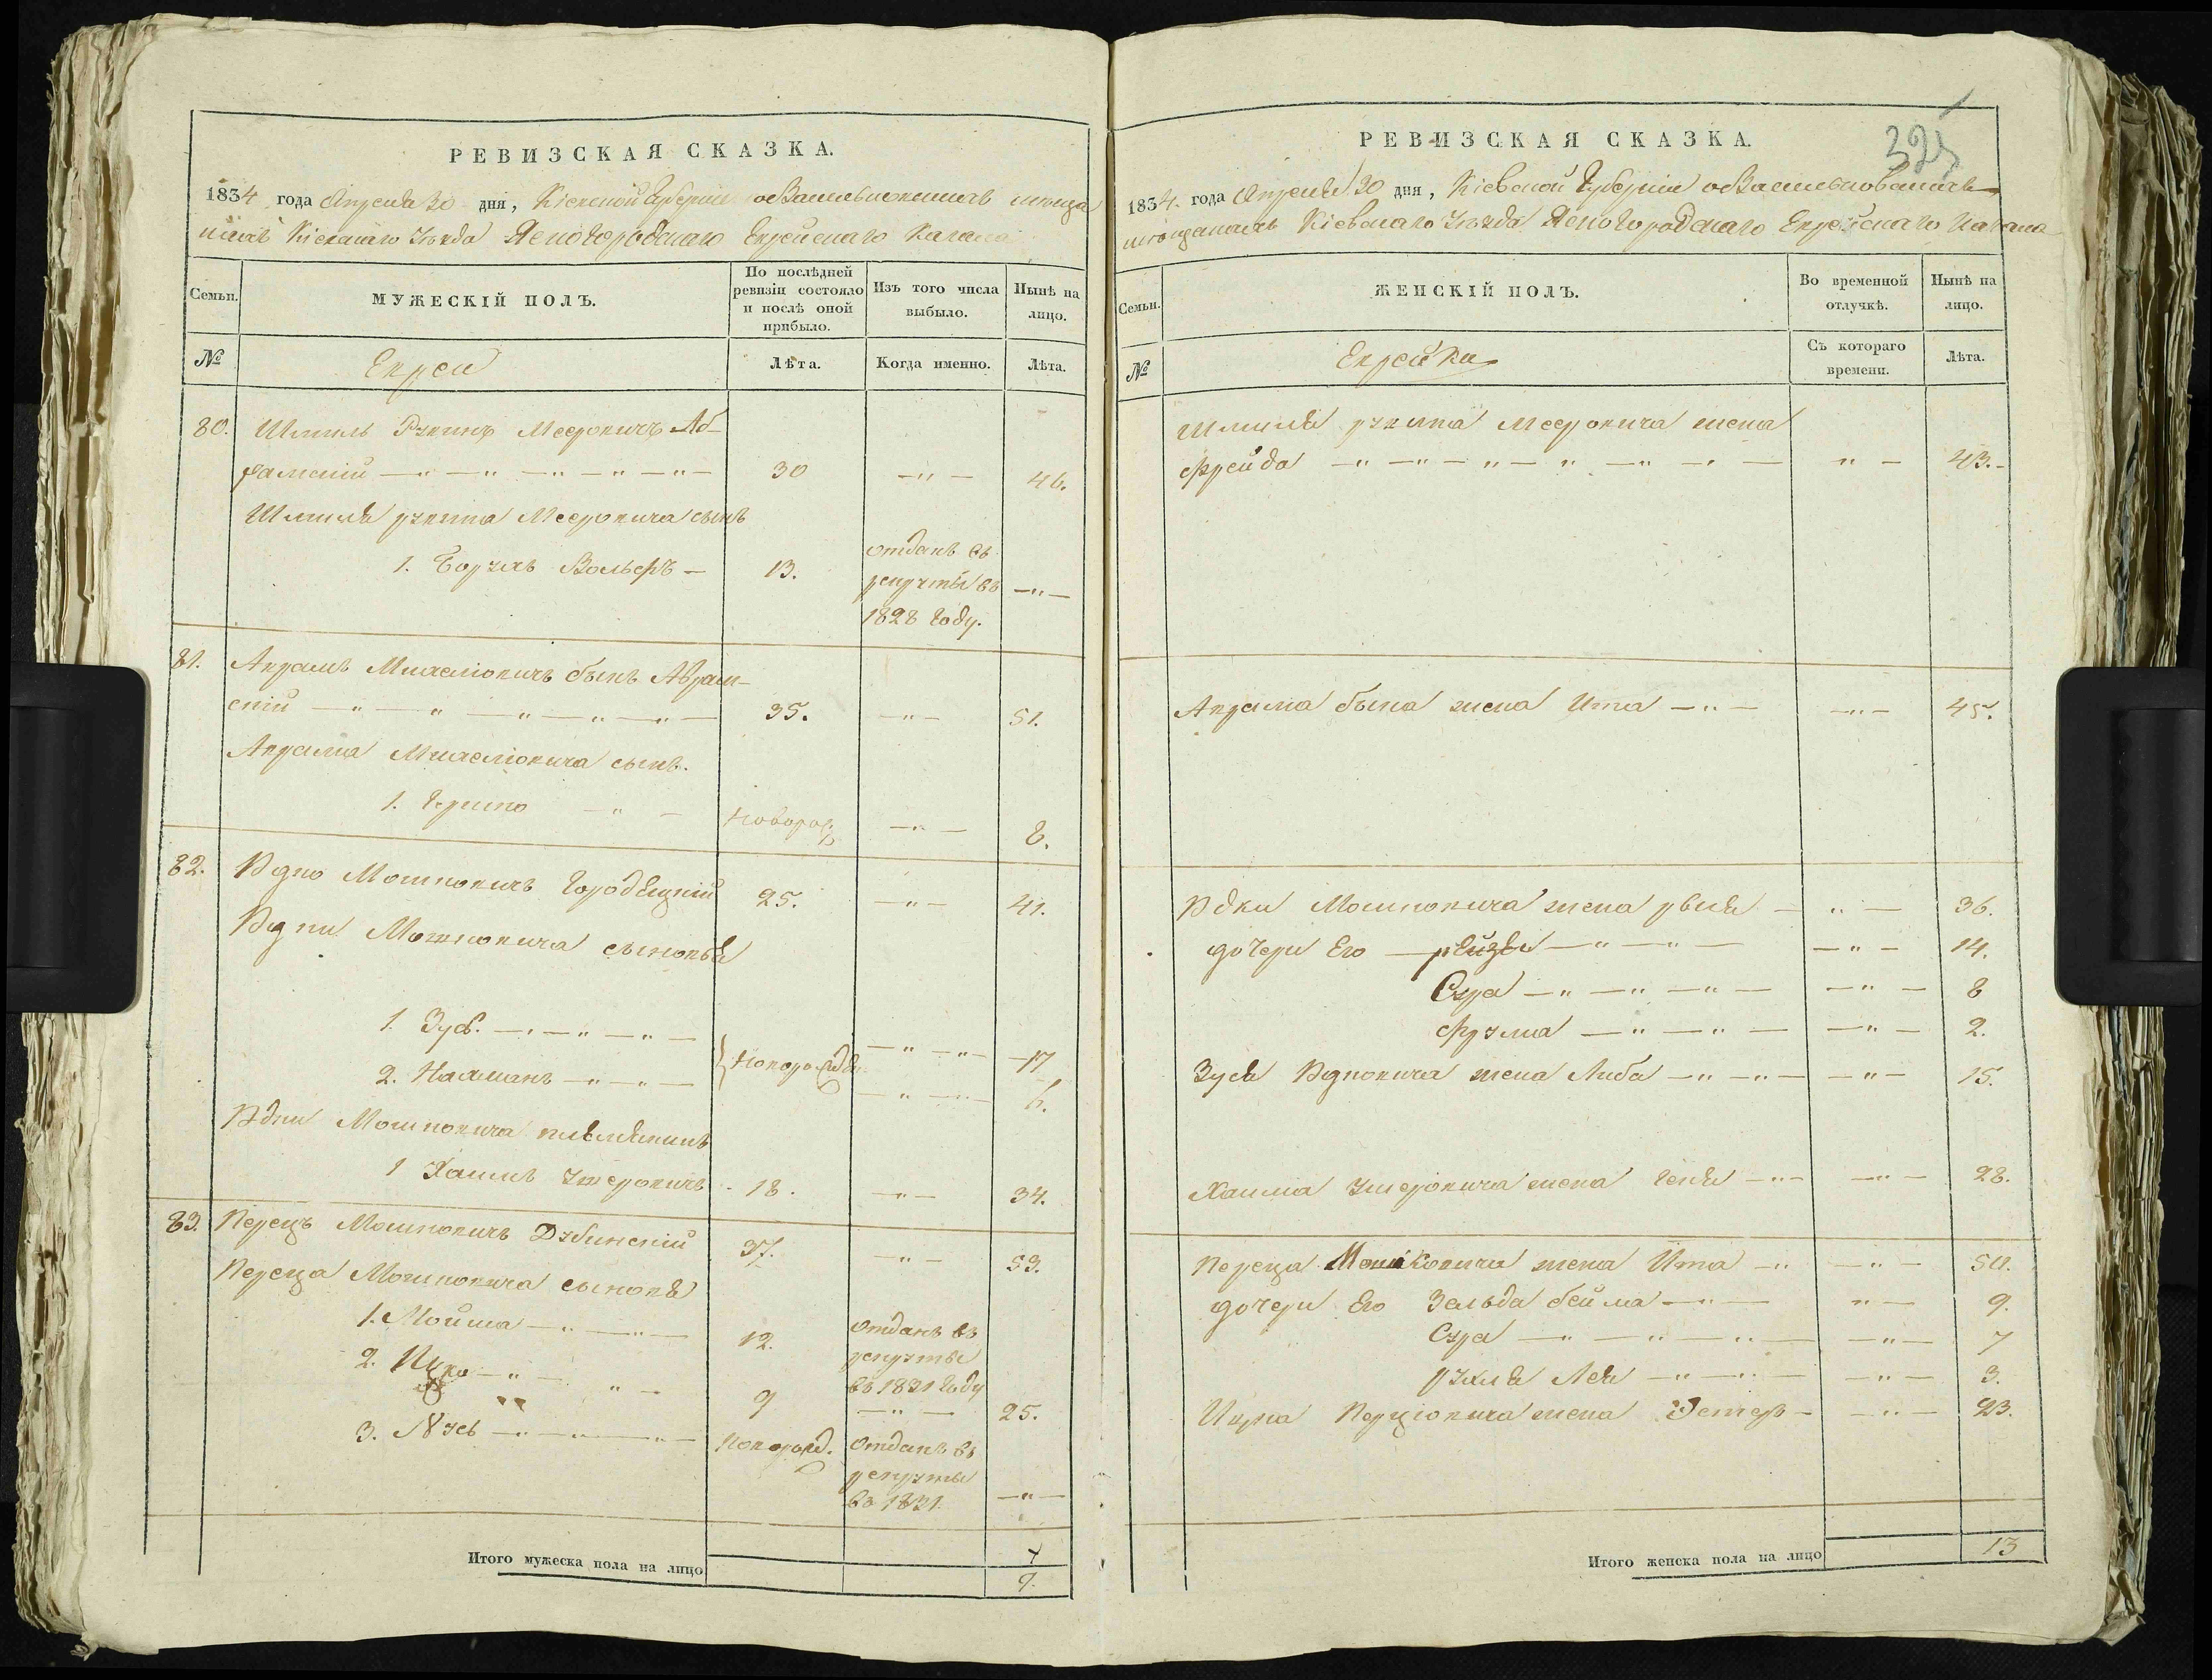 РЕВИЗСКАЯ СКАЗКА.
1834 года Апреля 30 дня, Кіевской Губерніи о Васильковскихъ мѣща
нахъ Кіевскаго Уѣзда Ясногородскаго Еврейскаго Кагала
Семьи.
МУЖЕСКІЙ ПОЛЪ.
По послѣдней ревизіи состояло и послѣ оной прибыло.
Изъ того числа выбыло.
Нынѣ на лицо.
№
Евреи
Лѣта.
Когда именно.
Лѣта.
80. Шмиль Рувинъ Мееровичъ Аб-
рамскій 30 46.
Шмиля рувина Мееровича сынъ
1. Борухъ Вольфъ 13. отданъ въ
рекруты въ
1828 году.
81. Аврамъ сынъ Абрам-
скій 35. 51.
Аврама сынъ.
1. новорож 8.
82. Мошковичъ Городецкій 25. 41.
Мошковича сыновья
1. Зусь. новорожд. 17
2. Нахманъ 6.
Мошковича племянникъ
1 Хаимъ 18. 34.
83. Перецъ Мошковичъ Дубинскій 37. 53.
Переца Мошковича сыновя
1. Мойша 12. отданъ въ
рекруты
въ 1831 году
2. 9 25.
3. новорожд. отданъ въ
рекруты
въ 1831.
Итого мужеска пола на лицо 7
9.
325
РЕВИЗСКАЯ СКАЗКА.
1834. года Апреля 30 дня, Кіевской Губерніи о Васильковскихъ
мѣщанахъ Кіевскаго Уѣзда Ясногородскаго Еврейскаго Кагала
Семьи.
ЖЕНСКІЙ ПОЛЪ.
Во временной отлучкѣ.
Нынѣ на лицо.
№
Еврейки
Съ котораго времени.
Лѣта.
Шмиля рувина Мееровича жена
Фрейда 43.
Аврама сына жена Ита 45.
Мошковича жена 36.
дочери Его рейзя 14.
Сура 8
Фрума 2.
Зуся жена Либа 15.
Хаима жена Геня 28.
Переца Мошковича жена Ита 50.
дочери Его Зельда бейла 9.
Сура 7
рухля Лея 3.
Перцовича жена Эстеръ 23.
Итого женска пола на лицо 13